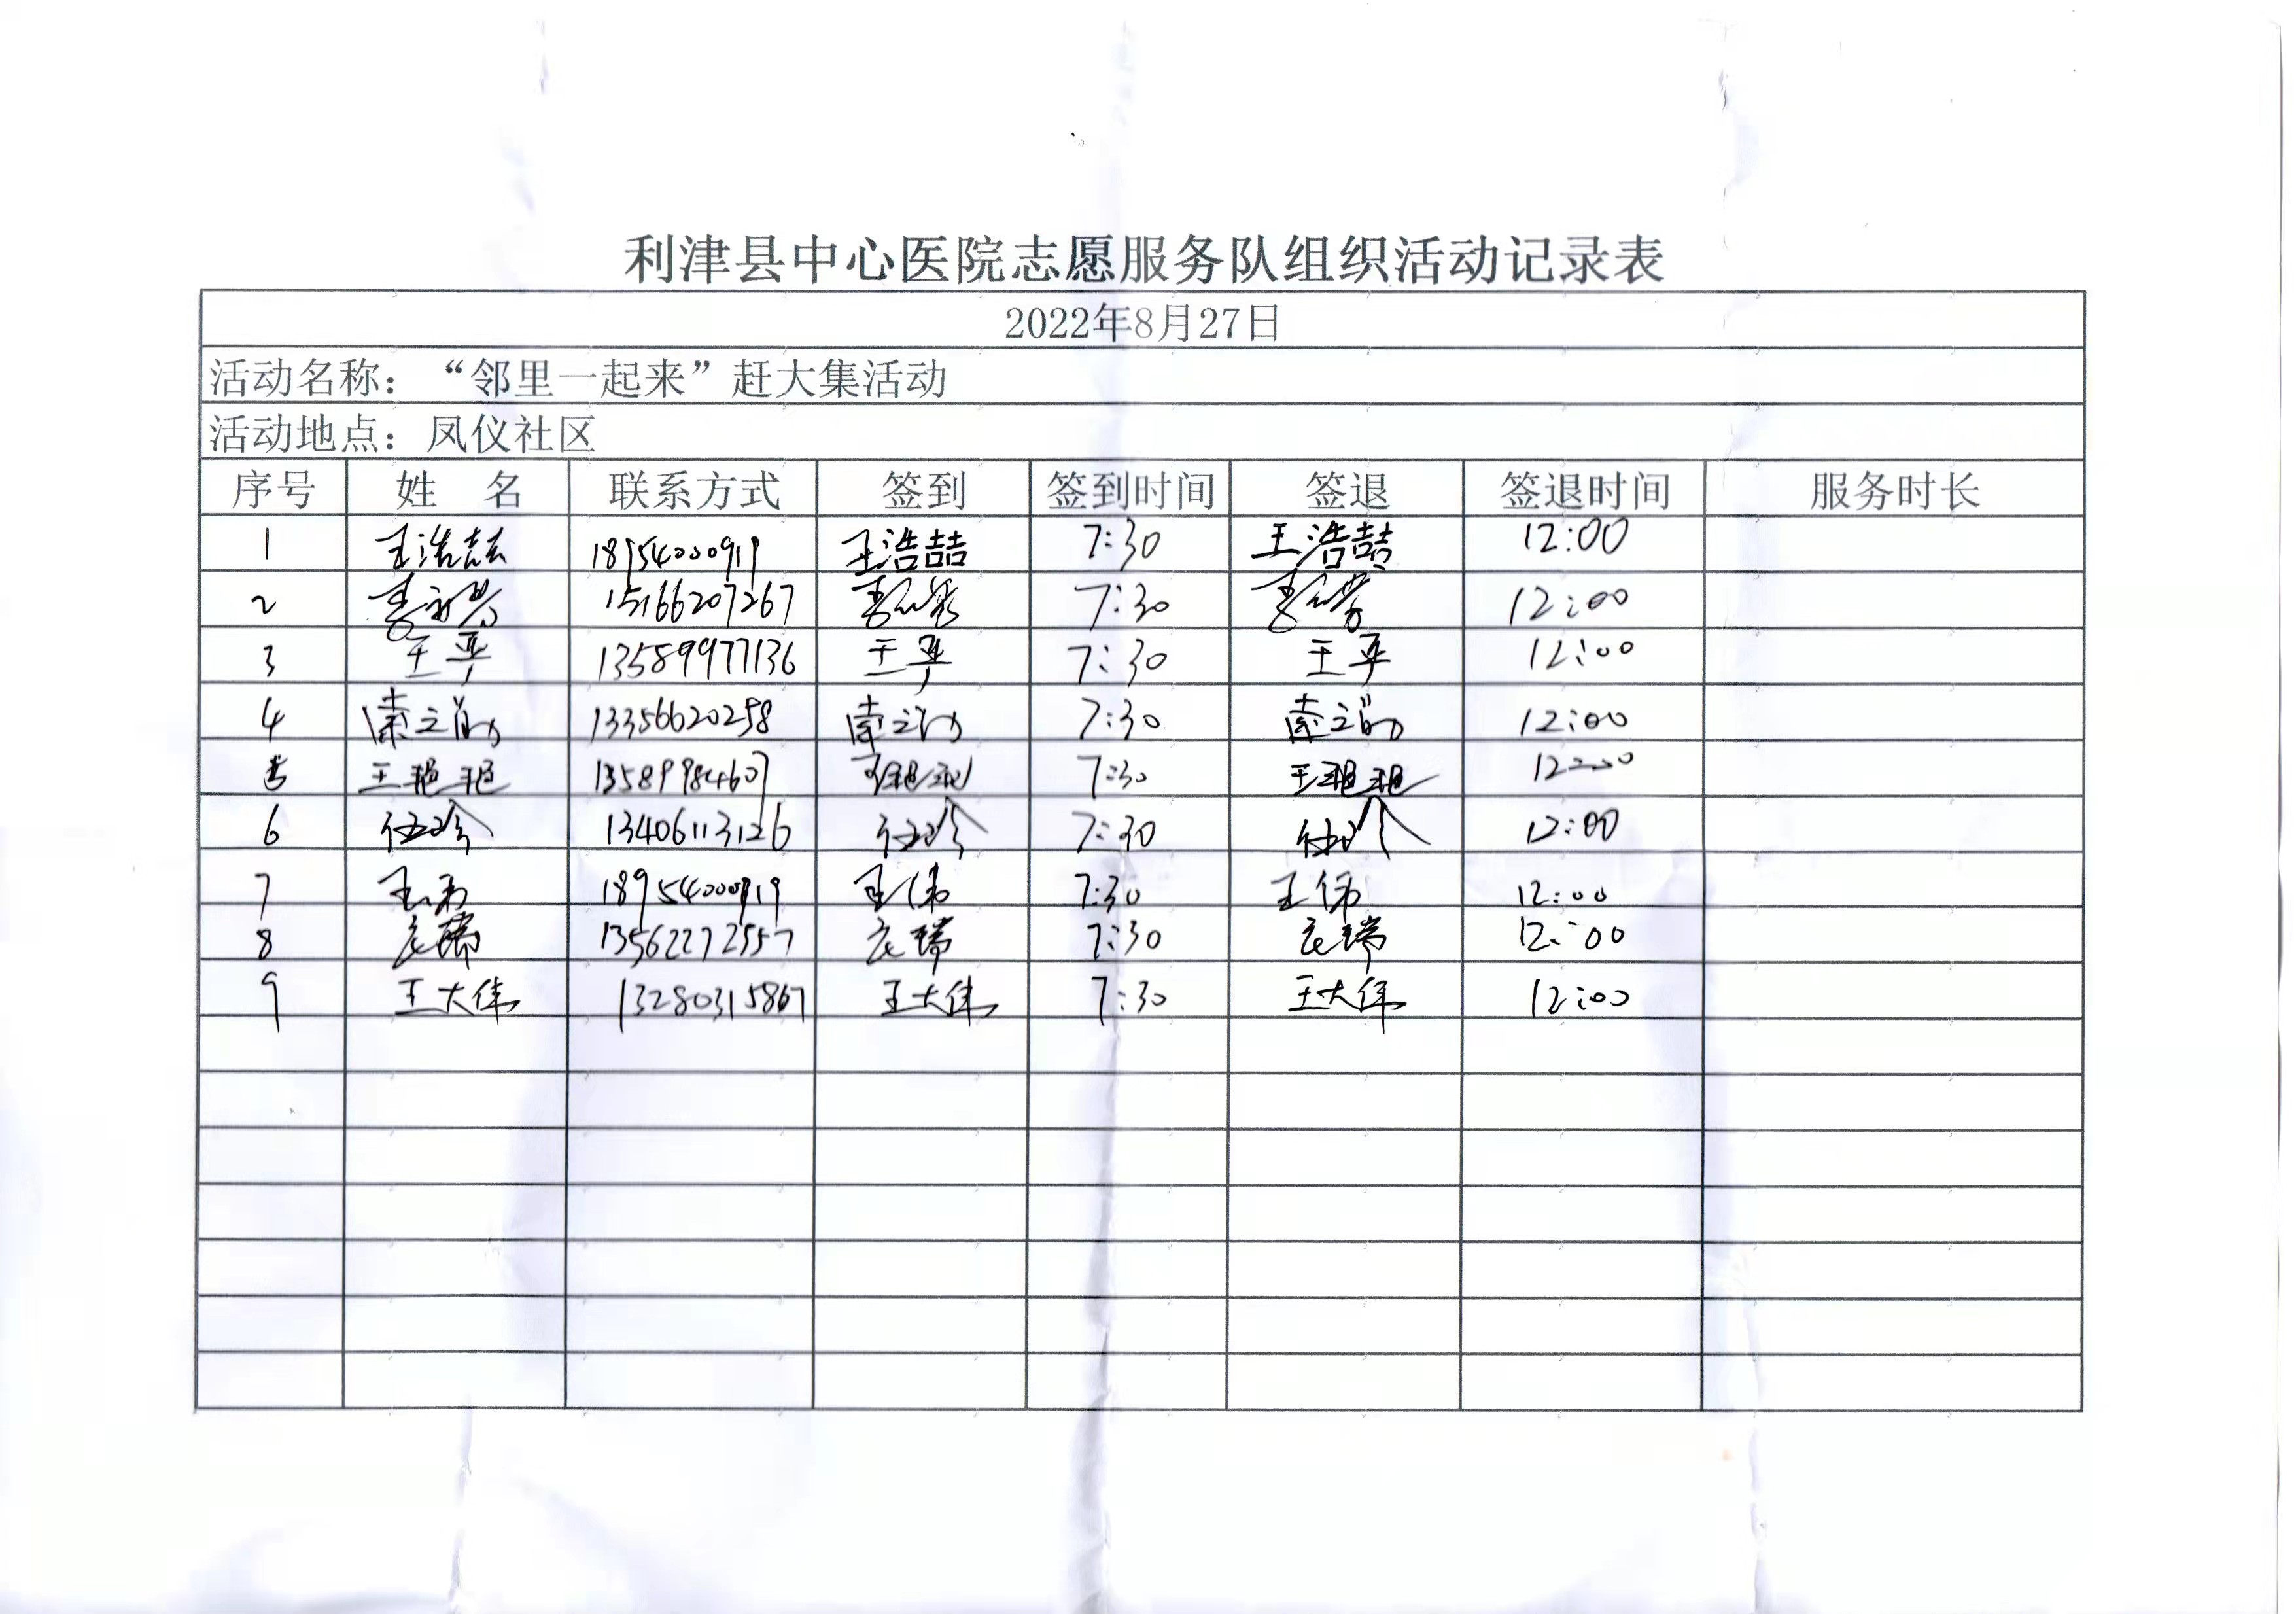 利津县中心医院志愿服务队组织活动记录表
2022年8月27日
活动名称：“邻里一起来”赶大集活动
活动地点：凤仪社区
序号 姓 名 联系方式 签到 签到时间 签退 签退时间 服务时长
1 王浩喆 18954000919 王浩喆 7:30 王浩喆 12:00
2 15166207267 7:30 12:00
3 王平 13589977136 王平 7:30 王平 12:00
4 13356620258 7:30 12:00
5 王艳艳 13589984607 王艳艳 7:30 王艳艳 12:00
6 伍玲 13406113126 伍玲 7:30 12:00
7 王伟 18954000919 王伟 7:30 王伟 12:00
8 13562272557 7:30 12:00
9 王大伟 13280315867 王大伟 7:30 王大伟 12:00